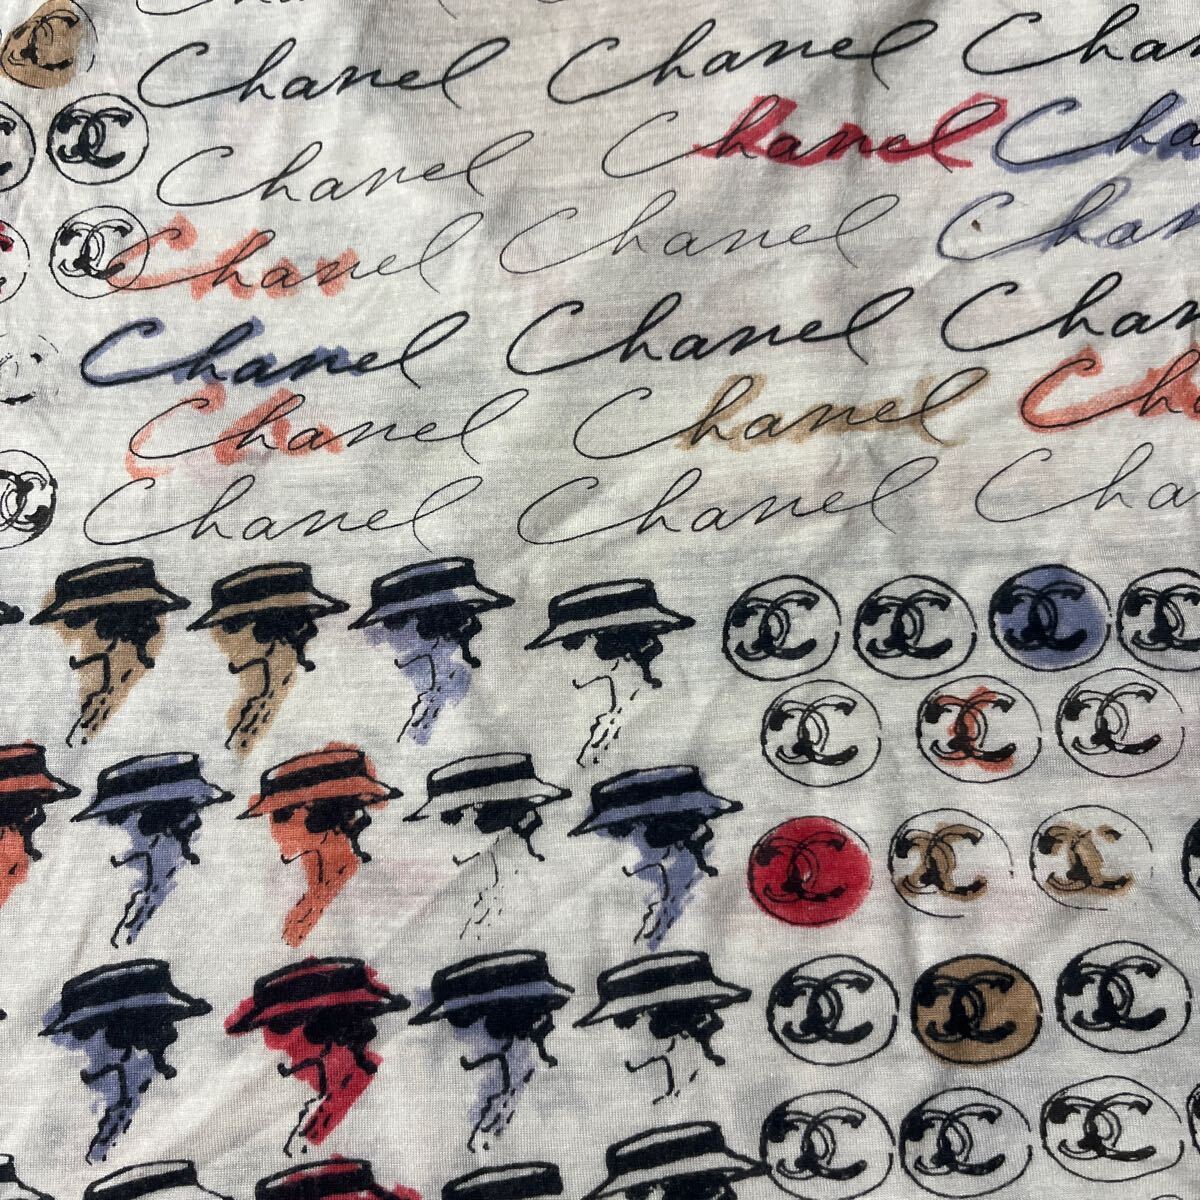 Chanel
Chanel Chanel Chan
Chanel Chanel Cha
Chanel Chanel Chan
Chanel Chanel Chan
Chanel Chanel Ch
Chanel Chanel Cha